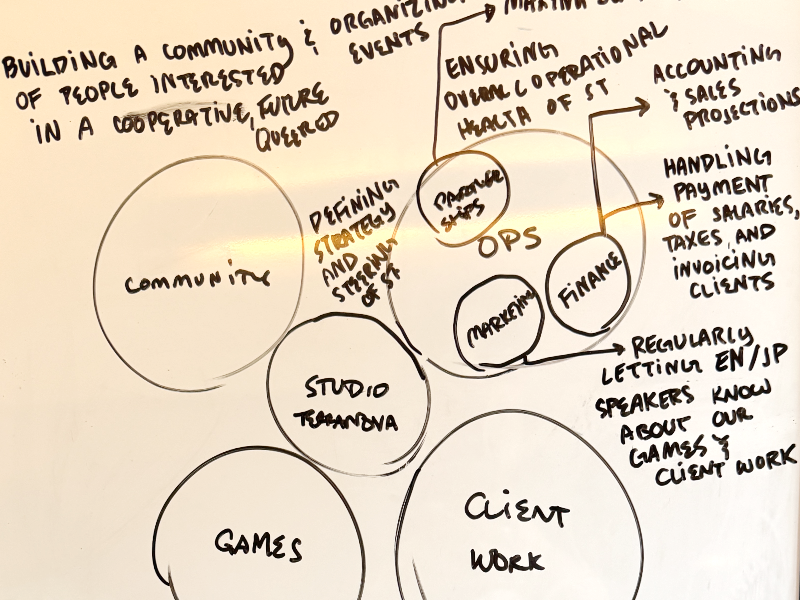 BUILDING A COMMUNITY & ORGANIZING
OF PEOPLE INTERESTED EVENTS
IN A COOPERATIVE, FUTURE
QUEERED
ENSURING
OVERALL OPERATIONAL
HEALTH OF ST
ACCOUNTING
& SALES
PROJECTIONS
HANDLING
PAYMENT
OF SALARIES,
TAXES, AND
INVOICING
CLIENTS
PARTNER
SHIPS
OPS
DEFINING
STRATEGY
AND
STEERING
OF ST
COMMUNITY
MARKETING
FINANCE
REGULARLY
LETTING EN/JP
SPEAKERS KNOW
ABOUT OUR
GAMES &
CLIENT WORK
STUDIO
TERRANOVA
GAMES
CLIENT
WORK